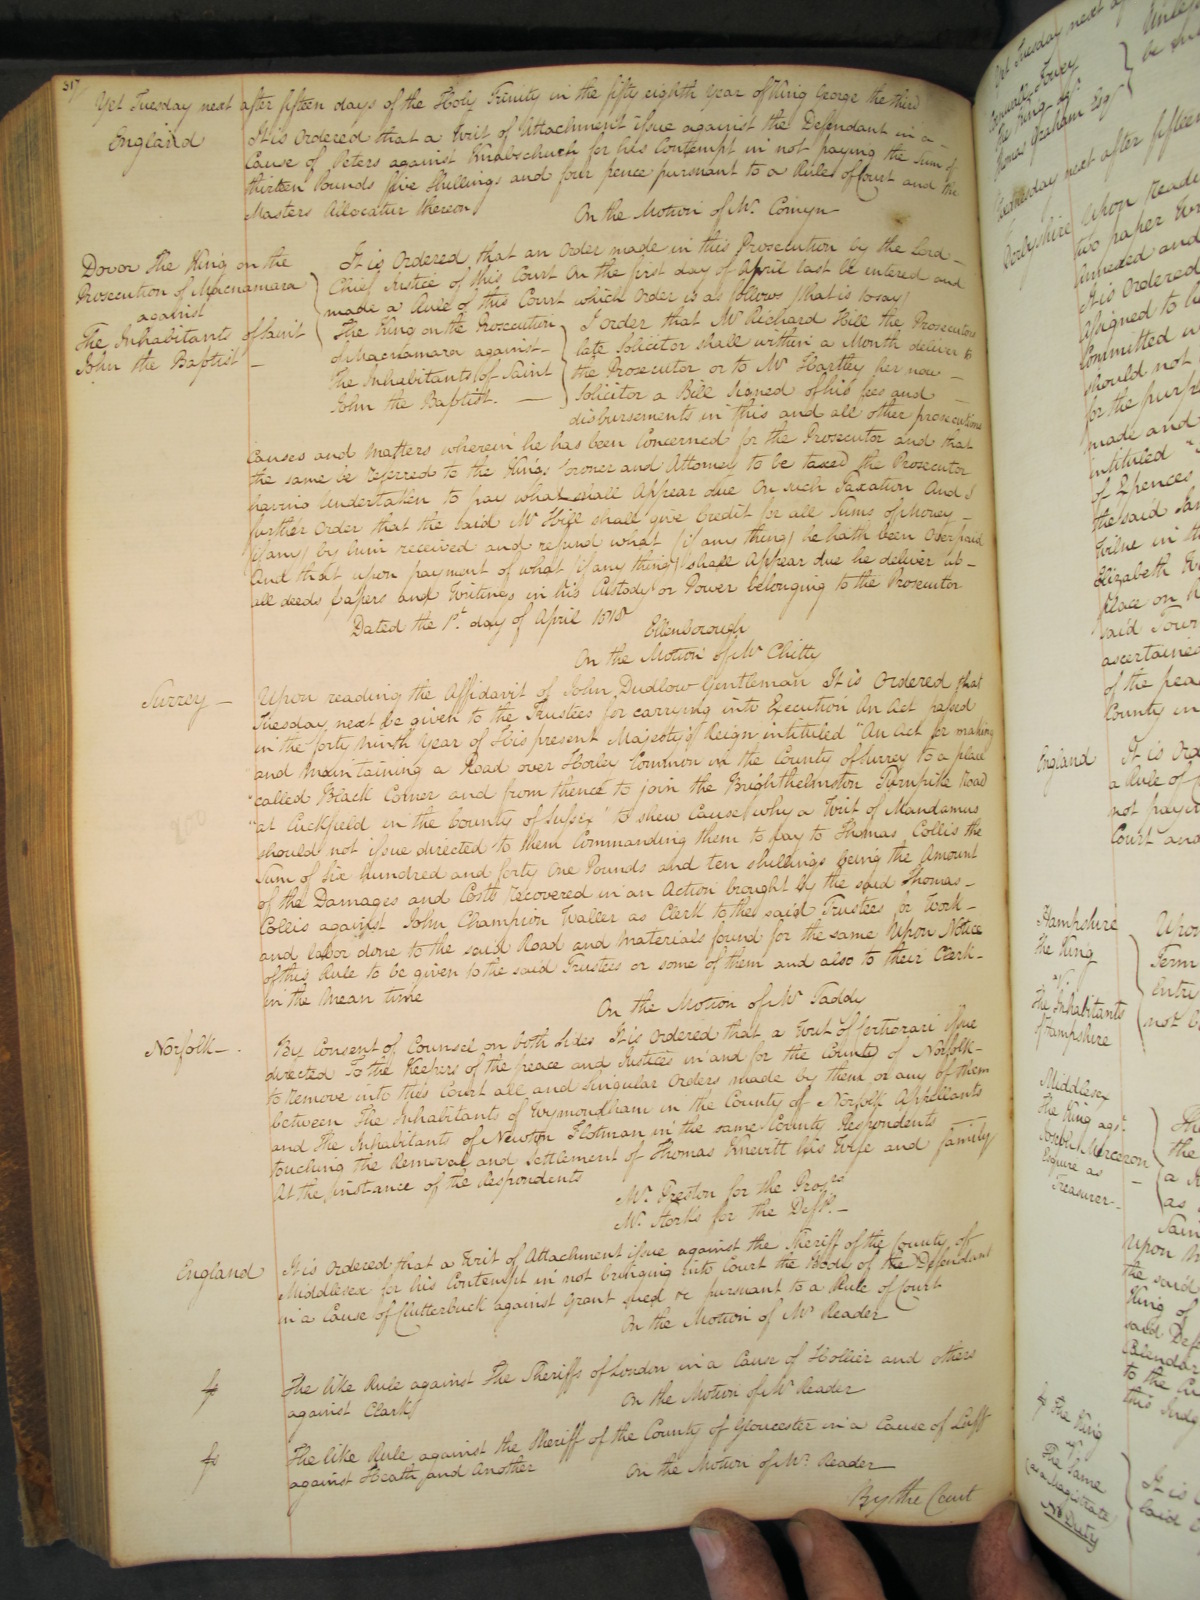 317
Yet Tuesday next after fifteen days of the Holy Trinity in the fifty eighth Year of King George the third
England
It is Ordered that a Writ of Attachment issue against the Defendant in a
Cause of Peters against Knabschuch for his Contempt in not paying the Sum of
thirteen Pounds five Shillings and four pence pursuant to a Rule of Court and the
Masters Allocatur thereon
On the Motion of Mr. Comyn
Dover The King on the
Prosecution of Macnamara
against
The Inhabitants of Saint
John the Baptist
It is Ordered that an Order made in this Prosecution by the Lord
Chief Justice of this Court on the first day of April last be entered and
made a Rule of this Court which Order is as follows (that is to say)
The King on the Prosecution
of Macnamara against
The Inhabitants of Saint
John the Baptist.
I order that Mr Richard Hill the Prosecutors
late Solicitor shall within a Month deliver to
the Prosecutor or to Mr Hartley her now
Solicitor a Bill Signed of his fees and
disbursements in this and all other prosecutions
Causes and Matters wherein he has been Concerned for the Prosecutor and that
the same be referred to the Kings Coroner and Attorney to be taxed the Prosecutor
having Undertaken to pay what shall Appear due On such Taxation And I
further Order that the said Mr Hill shall give Credit for all Sums of Money
(if any) by him received and refund what (if any thing) he hath been Overpaid
And that upon payment of what (if any thing) shall Appear due he deliver up
all deeds papers and Writings in his Custody or Power belonging to the Prosecutor
Dated the 1st. day of April 1818
Ellenborough
On the Motion of Mr Chitty
Surrey
Upon reading the Affidavit of John Dudlow Gentleman It is Ordered that
Tuesday next be given to the Trustees for carrying into Execution An Act passed
in the forty ninth Year of His present Majesty's Reign intituled "An Act for making
and Maintaining a Road over Horley Common in the County of Surrey to a place
"called Black Corner and from thence to join the Brighthelmston Turnpike Road
"at Cuckfield in the County of Sussex" to shew Cause why a Writ of Mandamus
should not issue directed to them Commanding them to pay to Thomas Collis the
Sum of Six Hundred and forty One Pounds and ten shillings being the Amount
of the Damages and Costs recovered in an Action brought by the said Thomas
Collis against John Champion Waller as Clerk to the said Trustees for Work
and labor done to the said Road and Materials found for the same Upon Notice
of this Rule to be given to the said Trustees or some of them and also to their Clerk
in the Mean time
On the Motion of Mr Taddy
Norfolk
By Consent of Counsel on both Sides It is Ordered that a Writ of Certiorari issue
directed To the Keepers of the peace and Justices in and for the County of Norfolk
to Remove into this Court all and Singular Orders made by them or any of them
between The Inhabitants of Wymondham in the County of Norfolk Appellants
and The Inhabitants of Newton Flotman in the same County Respondents
touching the Removal and Settlement of Thomas Knevitt his Wife and family
At the instance of the Respondents
Mr. Preston for the Prosrs
Mr. Storks for the Defts.
England
It is Ordered that a Writ of Attachment issue against the Sheriff of the County of
Middlesex for his Contempt in not bringing into Court the Body of the Defendant
in a Cause of Clutterbuck against Grant sued &c pursuant to a Rule of Court
On the Motion of Mr Reader
The like Rule against The Sheriffs of London in a Cause of Hollier and others
against Clark
On the Motion of Mr Reader
The like Rule against the Sheriff of the County of Gloucester in a Cause of Luff
against Heath and Another
On the Motion of Mr. Reader
By the Court
Yet Tuesday next
The King agst
Thomas Graham Esq
Wednesday next after fifteen
Derbyshire
Upon Reading
two paper
Annexed and
It is Ordered
Assigned to
Committed
should not
for the purp
made and
intituled
of Spences
the said
Elizabeth
place on
said Town
ascertained
of the peace
County in
England
It is Or
a Rule of
not payin
Court and
Hampshire
The King
The Inhabitants
of Hampshire
Upon
Term
Entre
not b
Middlesex
The King agst.
Joseph Merceron
Esquire as
Treasurer
The
the
as
Upon
the said
King of
said Def
Calendar
to the
this Judg
The King
The Same
(as a Magistrate)
No Duty
It is
said